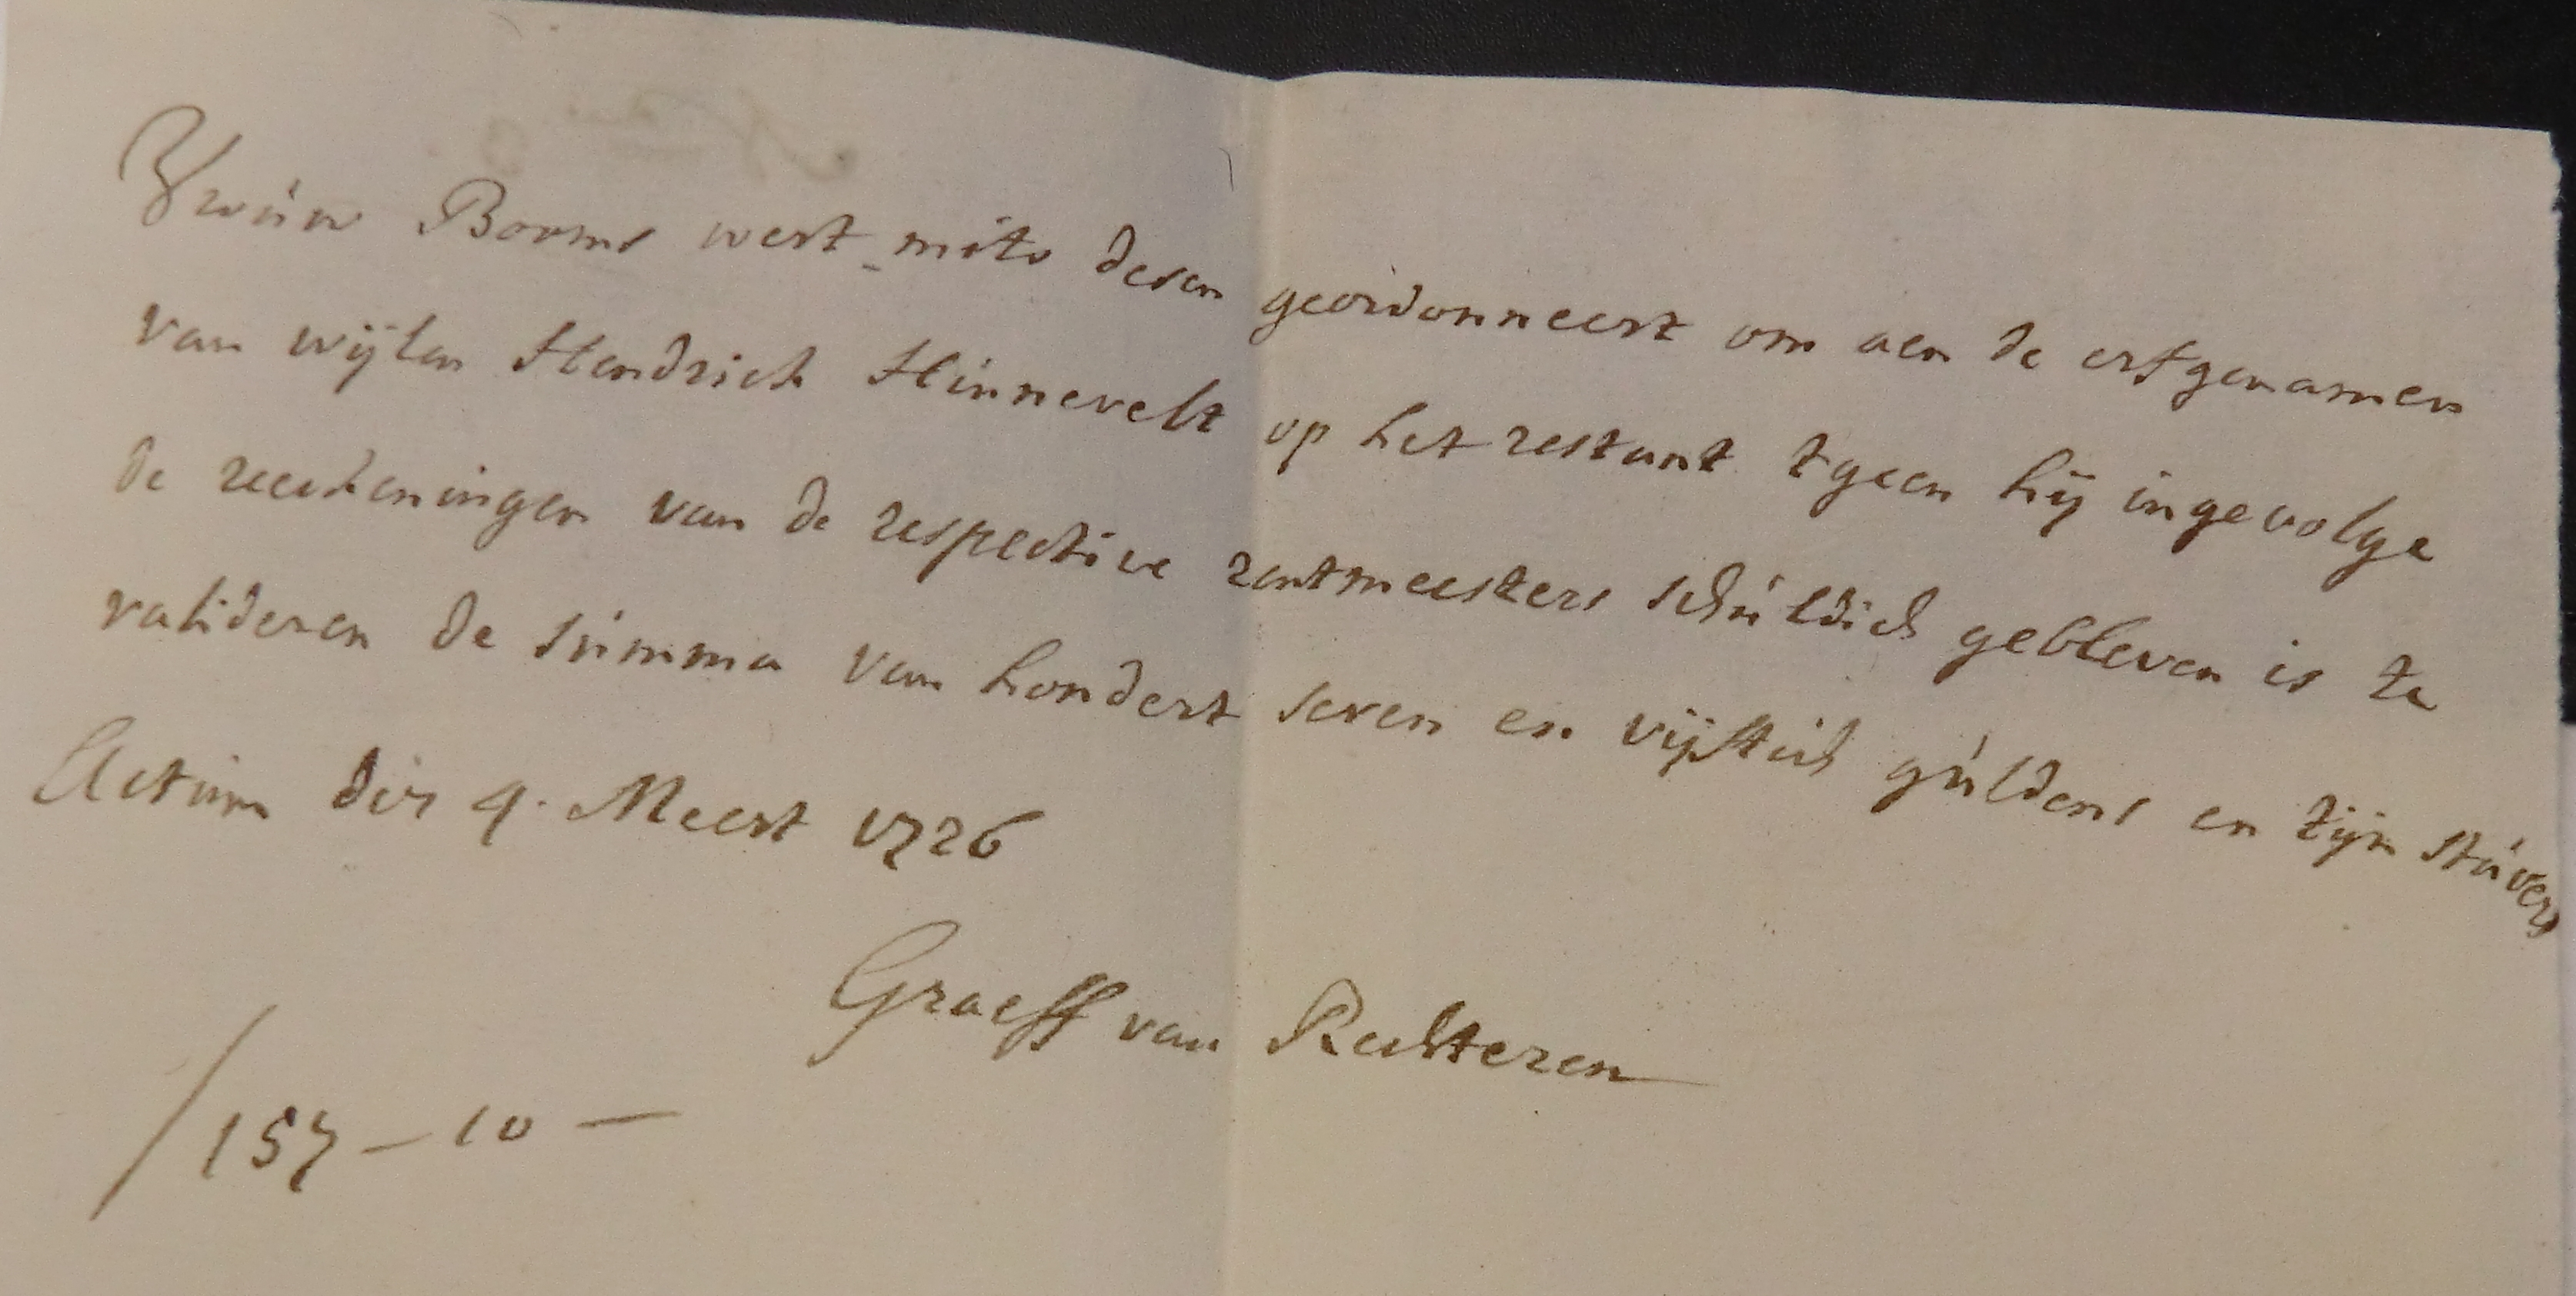 Vrouw Borms wert mits desen geordonneert om aen de erfgenamen
van wijlen Hendrich Hinnevelt op het restant tgeen hij ingevolge
de reeckeningen van de respective rentmeesters schuldich gebleven is te
valideren de summa van hondert seven en vijftich guldens en tijn stuvers
Actum die 4. Meert 1726
Graeff van Rechteren
/157 – 10 –